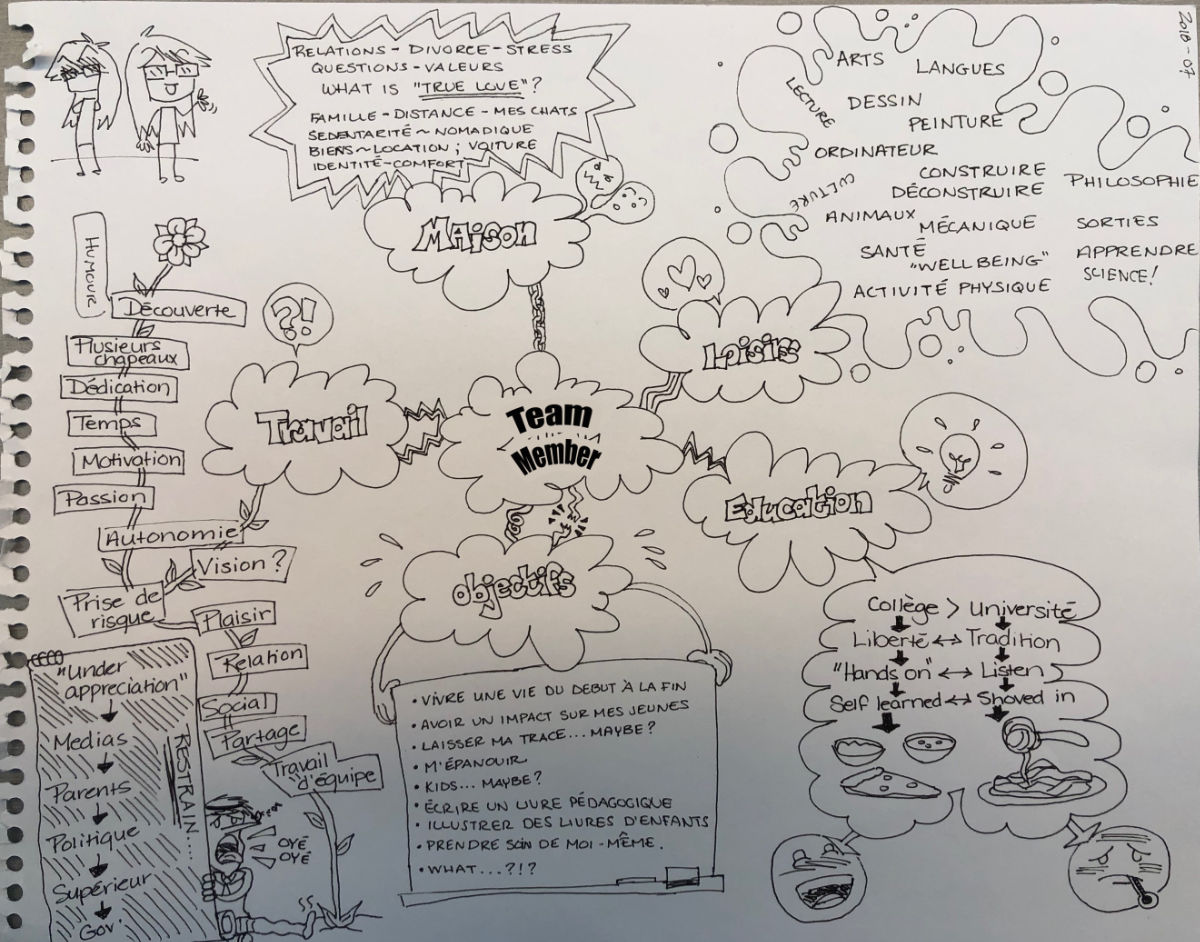 2018-07
RELATIONS - DIVORCE - STRESS
QUESTIONS - VALEURS
WHAT IS "TRUE LOVE"?
FAMILLE - DISTANCE - MES CHATS
SÉDENTARITÉ ~ NOMADIQUE
BIENS ~ LOCATION ; VOITURE
IDENTITÉ - COMFORT
MAISON
ARTS
LANGUES
LECTURE
DESSIN
PEINTURE
ORDINATEUR
CULTURE
CONSTRUIRE
DÉCONSTRUIRE
PHILOSOPHIE
ANIMAUX
MÉCANIQUE
SORTIES
SANTÉ
"WELL BEING"
APPRENDRE
SCIENCE!
ACTIVITÉ PHYSIQUE
Loisirs
HUMOUR
Découverte
Plusieurs
chapeaux
Dédication
Temps
Motivation
Passion
Autonomie
Vision ?
Prise de
risque
Plaisir
Relation
Social
Partage
Travail
d'équipe
?!
Travail
Team
Member
Education
Collège > Université
Liberté ↔ Tradition
"Hands on" ↔ Listen
Self learned ↔ Shoved in
Objectifs
• VIVRE UNE VIE DU DEBUT À LA FIN
• AVOIR UN IMPACT SUR MES JEUNES
• LAISSER MA TRACE... MAYBE?
• M'ÉPANOUIR
• KIDS... MAYBE?
• ÉCRIRE UN LIVRE PÉDAGOGIQUE
• ILLUSTRER DES LIVRES D'ENFANTS
• PRENDRE SOIN DE MOI-MÊME.
• WHAT...?!?
"Under
appreciation"
Medias
Parents
Politique
Supérieur
Gov.
RESTRAIN...
OYÉ
OYÉ